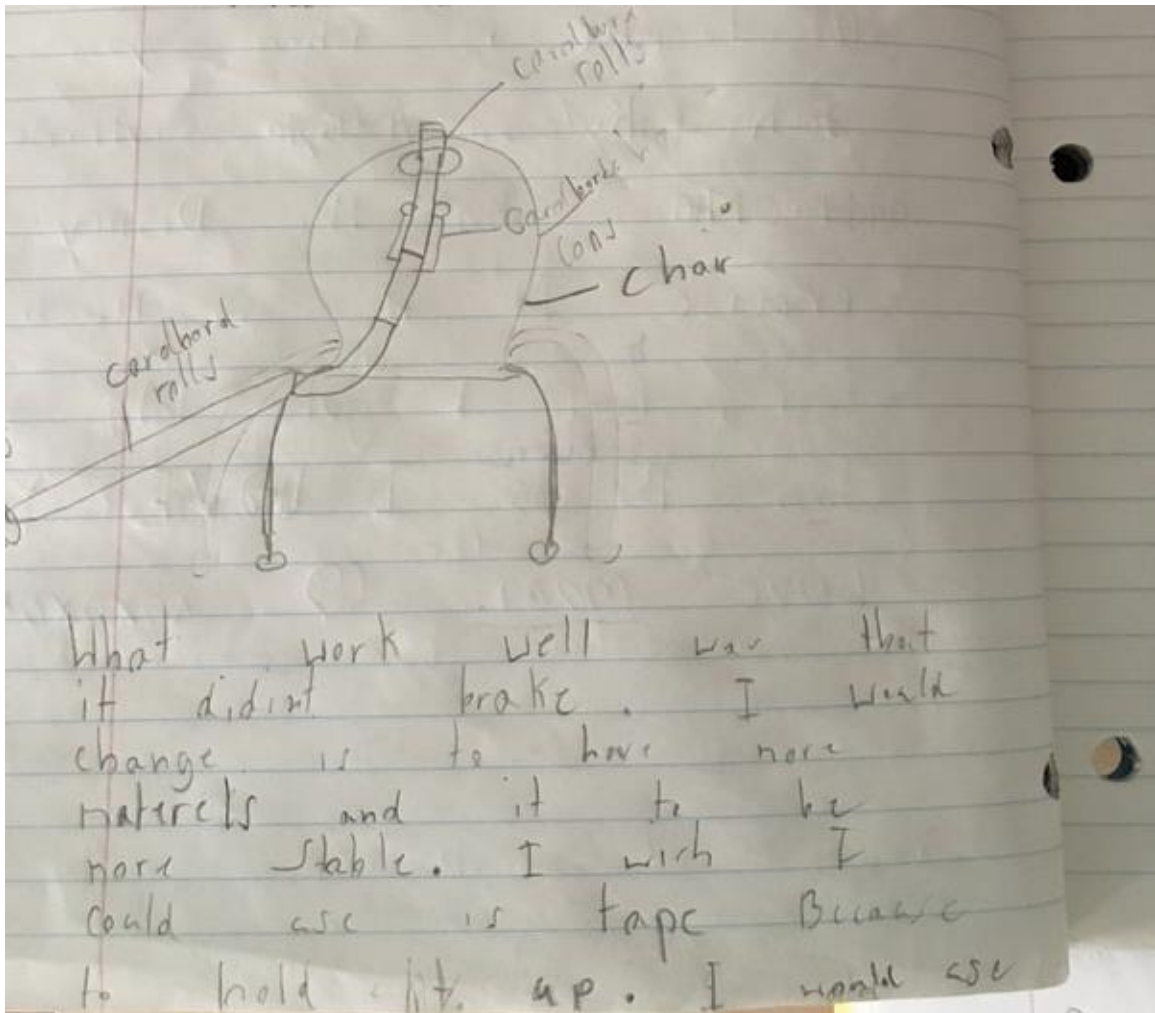 cardbord
rolls
Cardbord
Cons
Chair
cardbord
rolls
What work well was that
it didint brake. I would
change is to have more
materels and it to be
more stable. I wich I
could use is tape Because
to hold it up. I would use